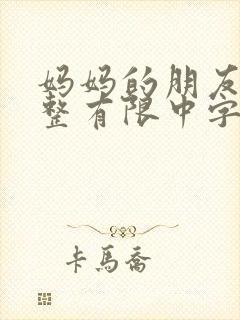 妈妈的朋友
整有限中字
卡馬喬